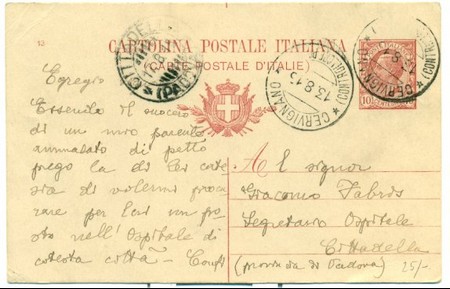 12
CARTOLINA POSTALE ITALIANA
(CARTE POSTALE D'ITALIE)
CITTADELLA
(PADOVA)
CERVIGNANO (CONTROLLO)
13.8.15
CERVIGNANO (CONTROLLO)
Egregio
Essendo il suocero
di un mio parente
ammalato di petto
prego la di Lei corte
sia di volermi procu
rare per Lui un po
sto nell'Ospitale di
cotesta città –
Al signor
Giacomo Fabris
Segretario Ospitale
Cittadella
(provincia di Padova)
25/-